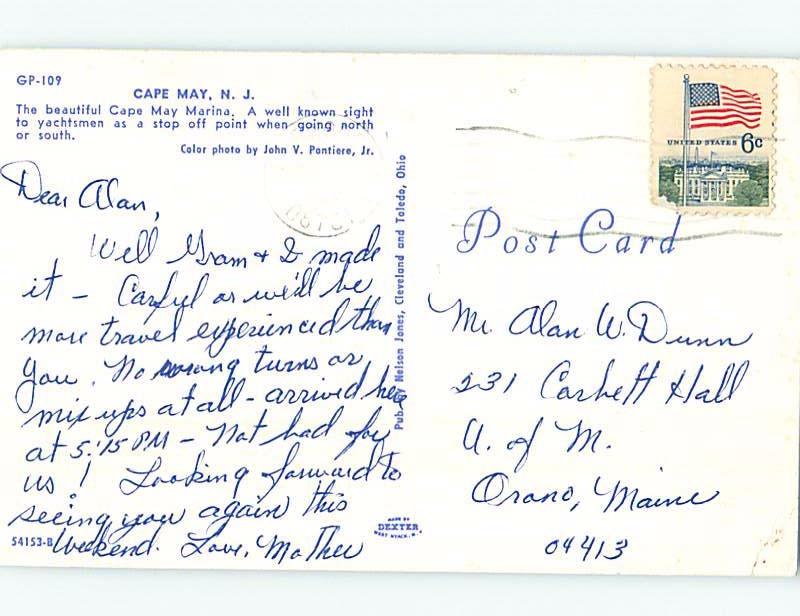 GP-109
CAPE MAY, N. J.
The beautiful Cape May Marina. A well known sight
to yachtsmen as a stop off point when going north
or south.
Color photo by John V. Pontiere, Jr.
Dear Alan,
Well Gram & I made
it - Careful or we'll be
more travel experienced than
you. No wrong turns or
mix ups at all - arrived here
at 5:15 PM - Not bad for
us! Looking forward to
seeing you again this
Weekend. Love, Mother
54153-B
Pub. by Nelson Jones, Cleveland and Toledo, Ohio
MADE BY
DEXTER
WEST NYACK, N.Y.
UNITED STATES 6c
Post Card
Mr. Alan W. Dunn
231 Corbett Hall
U. of M.
Orono, Maine
04413